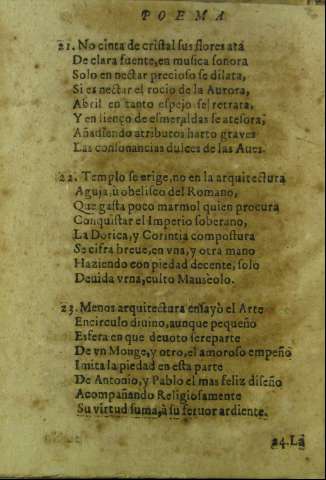 POEMA
21. No cinta de cristal sus flores ata
De clara fuente, en musica sonora
Solo en nectar precioso se dilata,
Si es nectar el rocio de la Aurora,
Abril en tanto espejo se retrata,
Y en lienço de esmeraldas se atesora,
Añadiendo atributos harto graves
Las consonancias dulces de las Aues.
22. Templo se erige, no en la arquitectura
Aguja, ù obelisco del Romano,
Que gasta poco marmol quien procura
Conquistar el Imperio soberano,
La Dorica, y Corintia compostura
Se cifra breue, en vna, y otra mano
Haziendo con piedad decente, solo
Deuida vrna, culto Mauseolo.
23. Menos arquitectura ensayò el Arte
Encirculo diuino, aunque pequeño
Esfera en que deuoto sereparte
De vn Monge, y otro, el amoroso empeño
Imita la piedad en esta parte
De Antonio, y Pablo el mas feliz diseño
Acompañando Religiosamente
Su virtud suma, à su feruor ardiente.
24. La